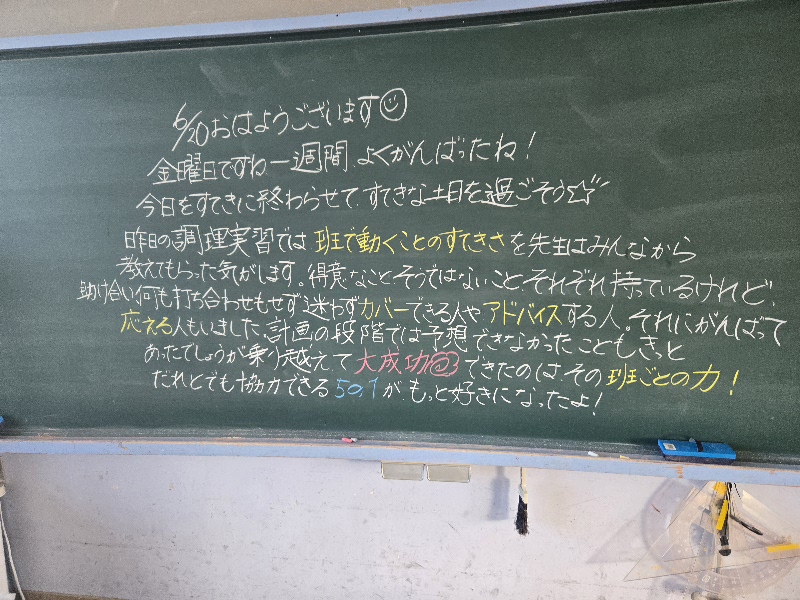 6/20 おはようございます☺
金曜日ですね 一週間、よくがんばったね!
今日をすてきに終わらせて、すてきな土日を過ごそう☆
昨日の調理実習では 班で動くことのすてきさ を先生はみんなから
教えてもらった気がします。得意なことそうではないことそれぞれ持っているけれど、
助け合い何も打ち合わせもせず迷わずカバーできる人やアドバイスする人。それにがんばって
応える人もいました。計画の段階では予想できなかったこともきっと
あったでしょうが乗り越えて 大成功 できたのは、その 班ごとの力!
だれとでも協力できる 5の1 が、もっと好きになったよ!